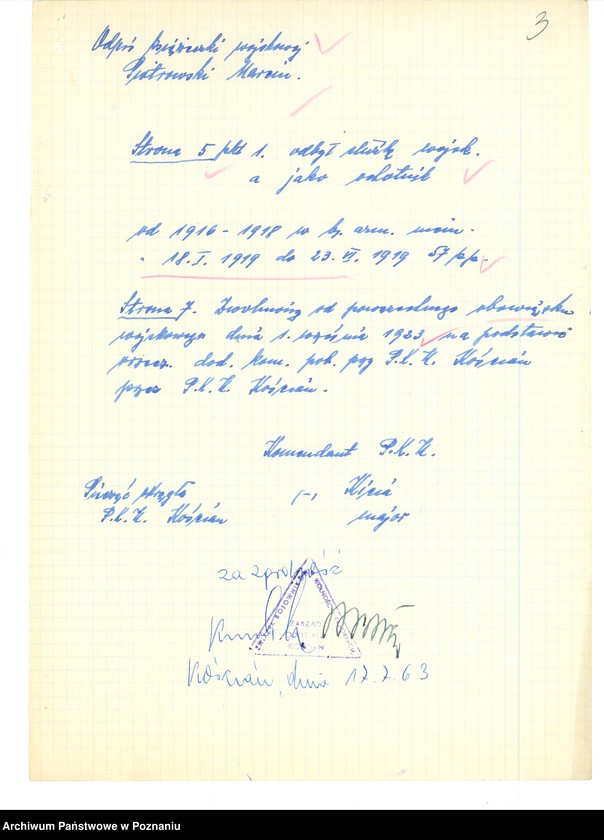 3
Odpis książeczki wojskowej
Piotrowski Marcin.
Strona 5 pkt 1. odbył służbę wojsk.
a jako ochotnik
od 1916 - 1918 w b. arm. niem.
" 18. I. 1919 do 23. VI. 1919 57 p.p.
Strona 7. Zwolniony od powszechnego obowiązku
wojskowego dnia 1. września 1923 na podstawie
orzecz. dod. kom. pob. przy P.K.U. Kościan
przez P.K.U. Kościan.
Komendant P.K.U.
Pieczęć okrągła (-)
P.K.U. Kościan major
za zgodność
ZWIĄZEK BOJOWNIKÓW O WOLNOŚĆ
ZARZĄD
KOŚCIAN
Kościan, dnia 17.7.63
Archiwum Państwowe w Poznaniu